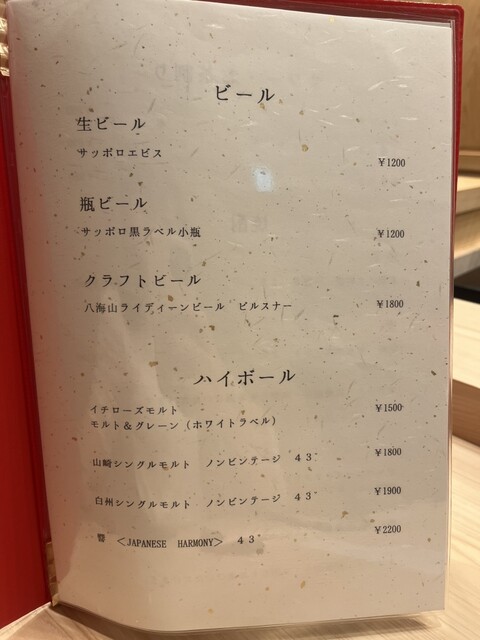 ビール
生ビール
サッポロエビス ¥1200
瓶ビール
サッポロ黒ラベル小瓶 ¥1200
クラフトビール
八海山ライディーンビール ピルスナー ¥1800
ハイボール
イチローズモルト ¥1500
モルト＆グレーン（ホワイトラベル）
山崎シングルモルト ノンビンテージ 43° ¥1800
白州シングルモルト ノンビンテージ 43° ¥1900
響 ＜JAPANESE HARMONY＞ 43° ¥2200